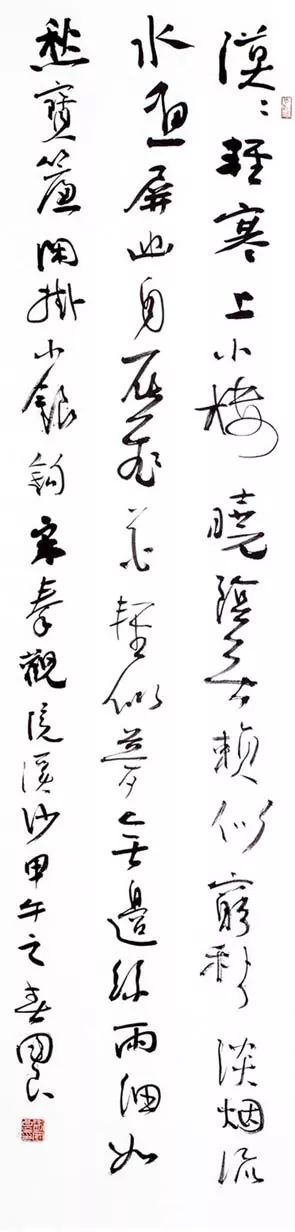 漠〻輕寒上小樓曉陰無賴似窮秋淡烟流
水畫屏幽自在飛花輕似夢無邊絲雨細如
愁寶簾閑掛小銀鈎宋秦觀浣溪沙甲午之春國良